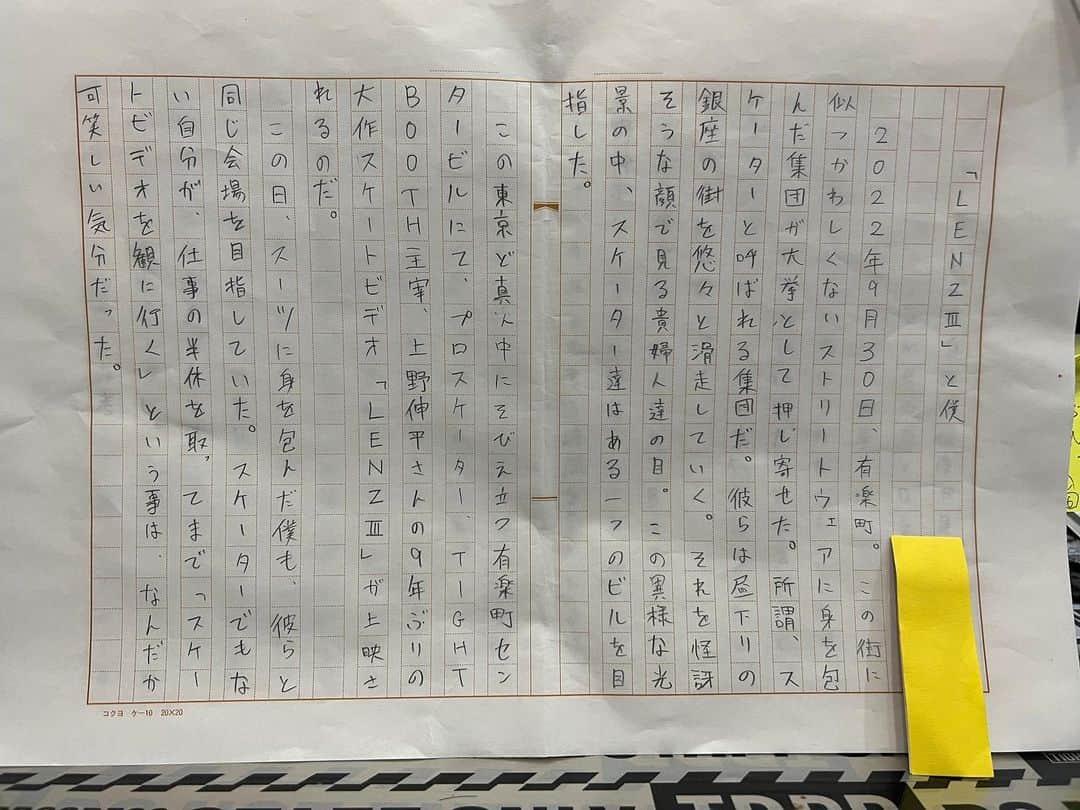 「LENZⅢ」と僕
2022年9月30日、有楽町。この街に
似つかわしくないストリートウェアに身を包
んだ集団が大挙として押し寄せた。所謂、ス
ケーターと呼ばれる集団だ。彼らは昼下りの
銀座の街を悠々と滑走していく。それを怪訝
そうな顔で見る貴婦人達の目。この異様な光
景の中、スケーター達はある一つのビルを目
指した。
この東京ど真ん中にそびえ立つ有楽町セン
タービルにて、プロスケーター、TIGHT
BOOTH主宰、上野伸平さんの9年ぶりの
大作スケートビデオ「LENZⅢ」が上映さ
れるのだ。
この日、スーツに身を包んだ僕も、彼らと
同じ会場を目指していた。スケーターでもな
い自分が、仕事の半休を取ってまで「スケー
トビデオを観に行く」という事は、なんだか
可笑しい気分だった。
コクヨ ケー10 20×20